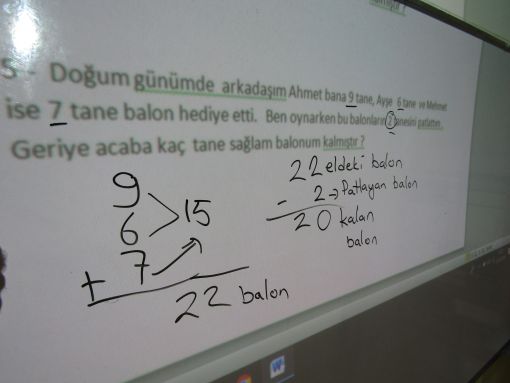 5 - Doğum günümde arkadaşım Ahmet bana 9 tane, Ayşe 6 tane ve Mehmet
ise 7 tane balon hediye etti. Ben oynarken bu balonların 2 tanesini patlattım.
Geriye acaba kaç tane sağlam balonum kalmıştır ?
9
6 > 15
+ 7
22 balon
22 eldeki balon
- 2 → Patlayan balon
20 kalan
balon